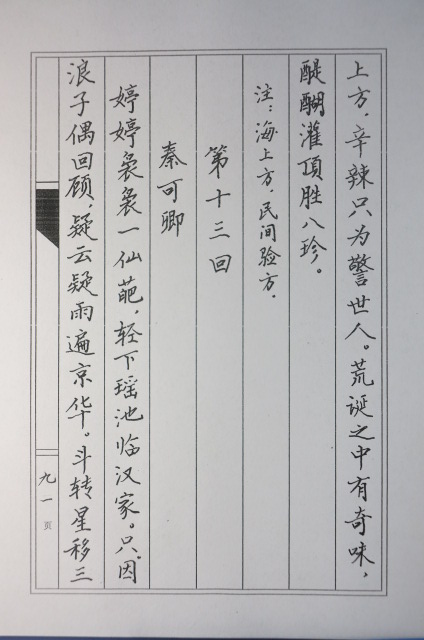 上方，辛辣只为警世人。荒诞之中有奇味，
醍醐灌顶胜八珍。
注：海上方，民间验方．
第十三回
秦可卿
婷婷袅袅一仙葩，轻下瑶池临汉家。只因
浪子偶回顾，疑云疑雨遍京华。斗转星移三
九一页